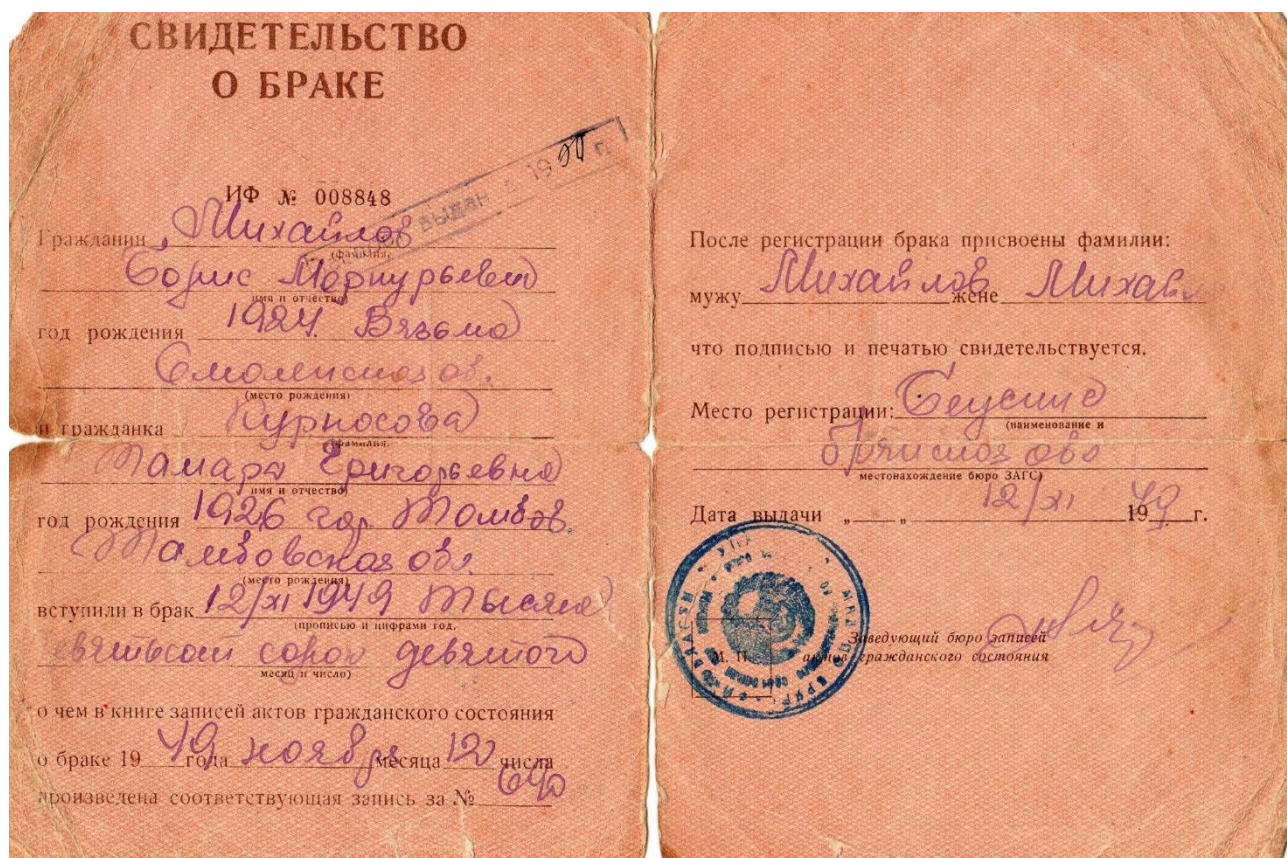 СВИДЕТЕЛЬСТВО
О БРАКЕ
выдан 1950 г.
ИФ № 008848
Гражданин Михайлов
(фамилия)
Борис Меркурьевич
имя и отчество)
год рождения 1924 Вязьма
Смоленская об.
(место рождения)
и гражданка Курносова
(фамилия)
Тамара Григорьевна
имя и отчество)
год рождения 1926 гор Тамбов.
Тамбовская обл.
(место рождения)
вступили в брак 12/XI 1949 Тысяча
(прописью и цифрами год,
девятьсот сорок девятого
месяц и число)
о чем в книге записей актов гражданского состояния
о браке 1949 года ноября месяца 12 числа
произведена соответствующая запись за №
После регистрации брака присвоены фамилии:
мужу Михайлов жене Михай
что подписью и печатью свидетельствуется.
Место регистрации:
(наименование и
местонахождение бюро ЗАГС)
Дата выдачи „ “ 12/XI 1949 г.
М. П.
Заведующий бюро записей
актов гражданского состояния